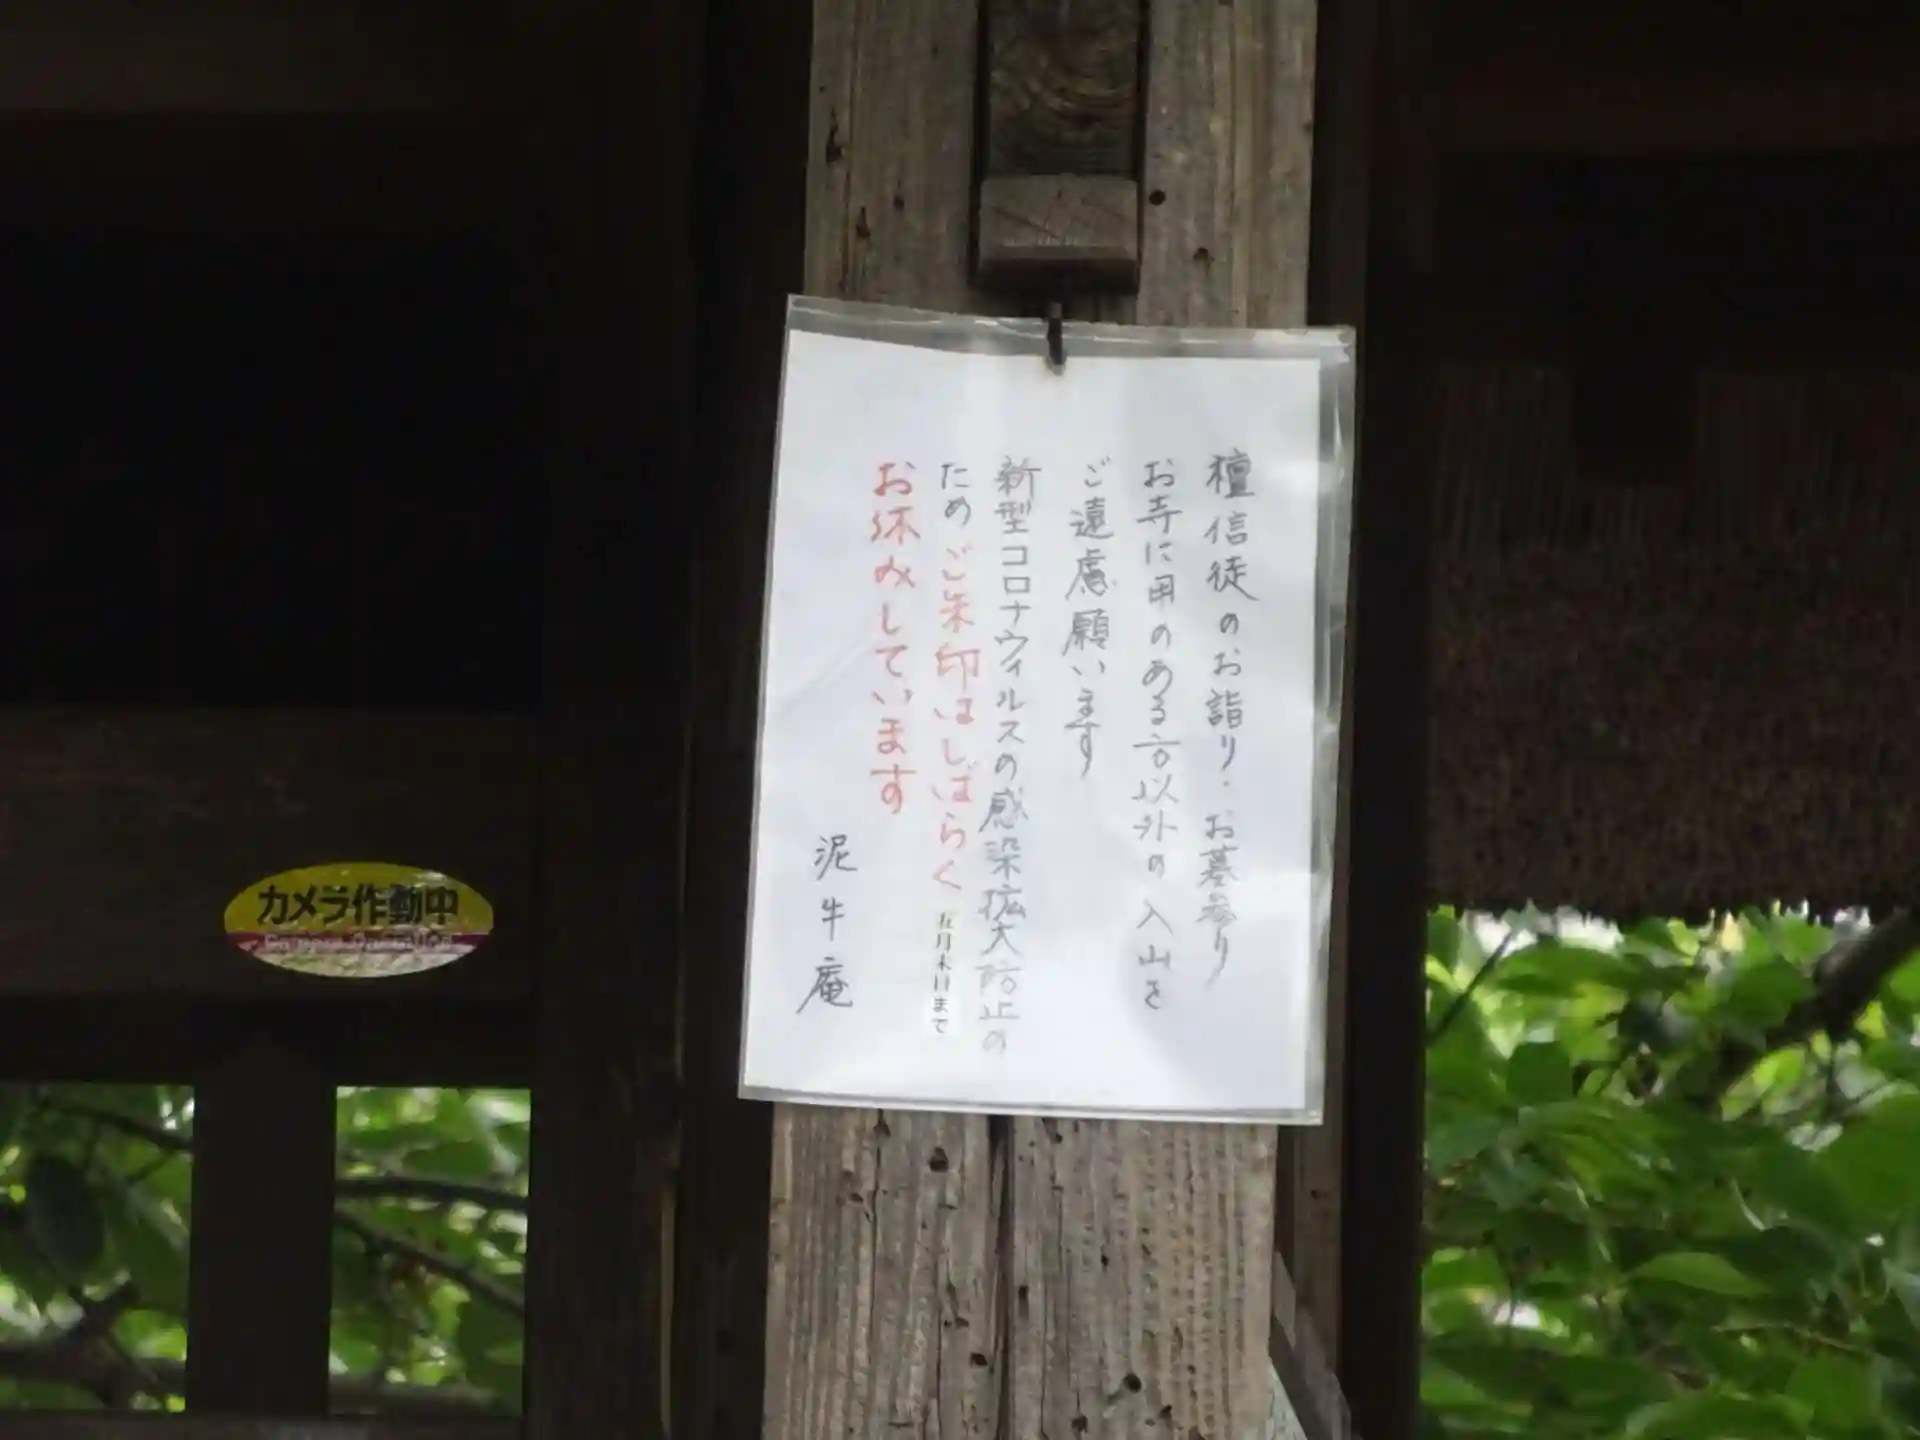 檀信徒のお詣り・お墓参り
お寺に用のある方以外の入山を
ご遠慮願います
新型コロナウィルスの感染拡大防止の
ためご朱印はしばらく五月末日まで
お休みしています
泥牛庵
カメラ作動中